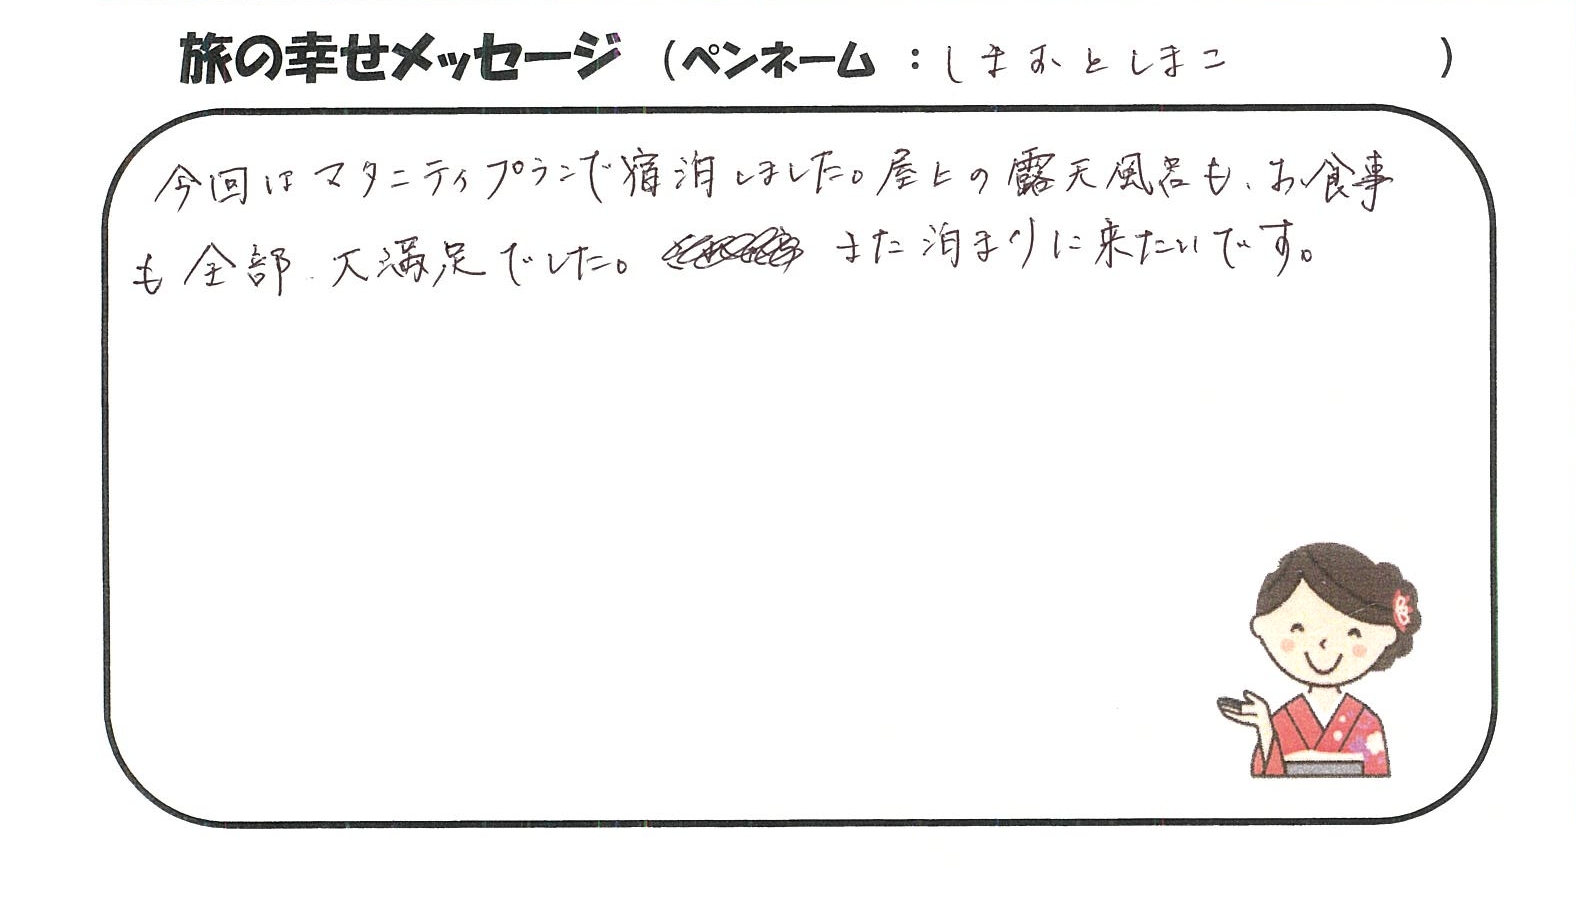 旅の幸せメッセージ (ペンネーム：しまおとしまこ)
今回はマタニティプランで宿泊しました。屋上の露天風呂も、お食事
も全部、大満足でした。また泊まりに来たいです。